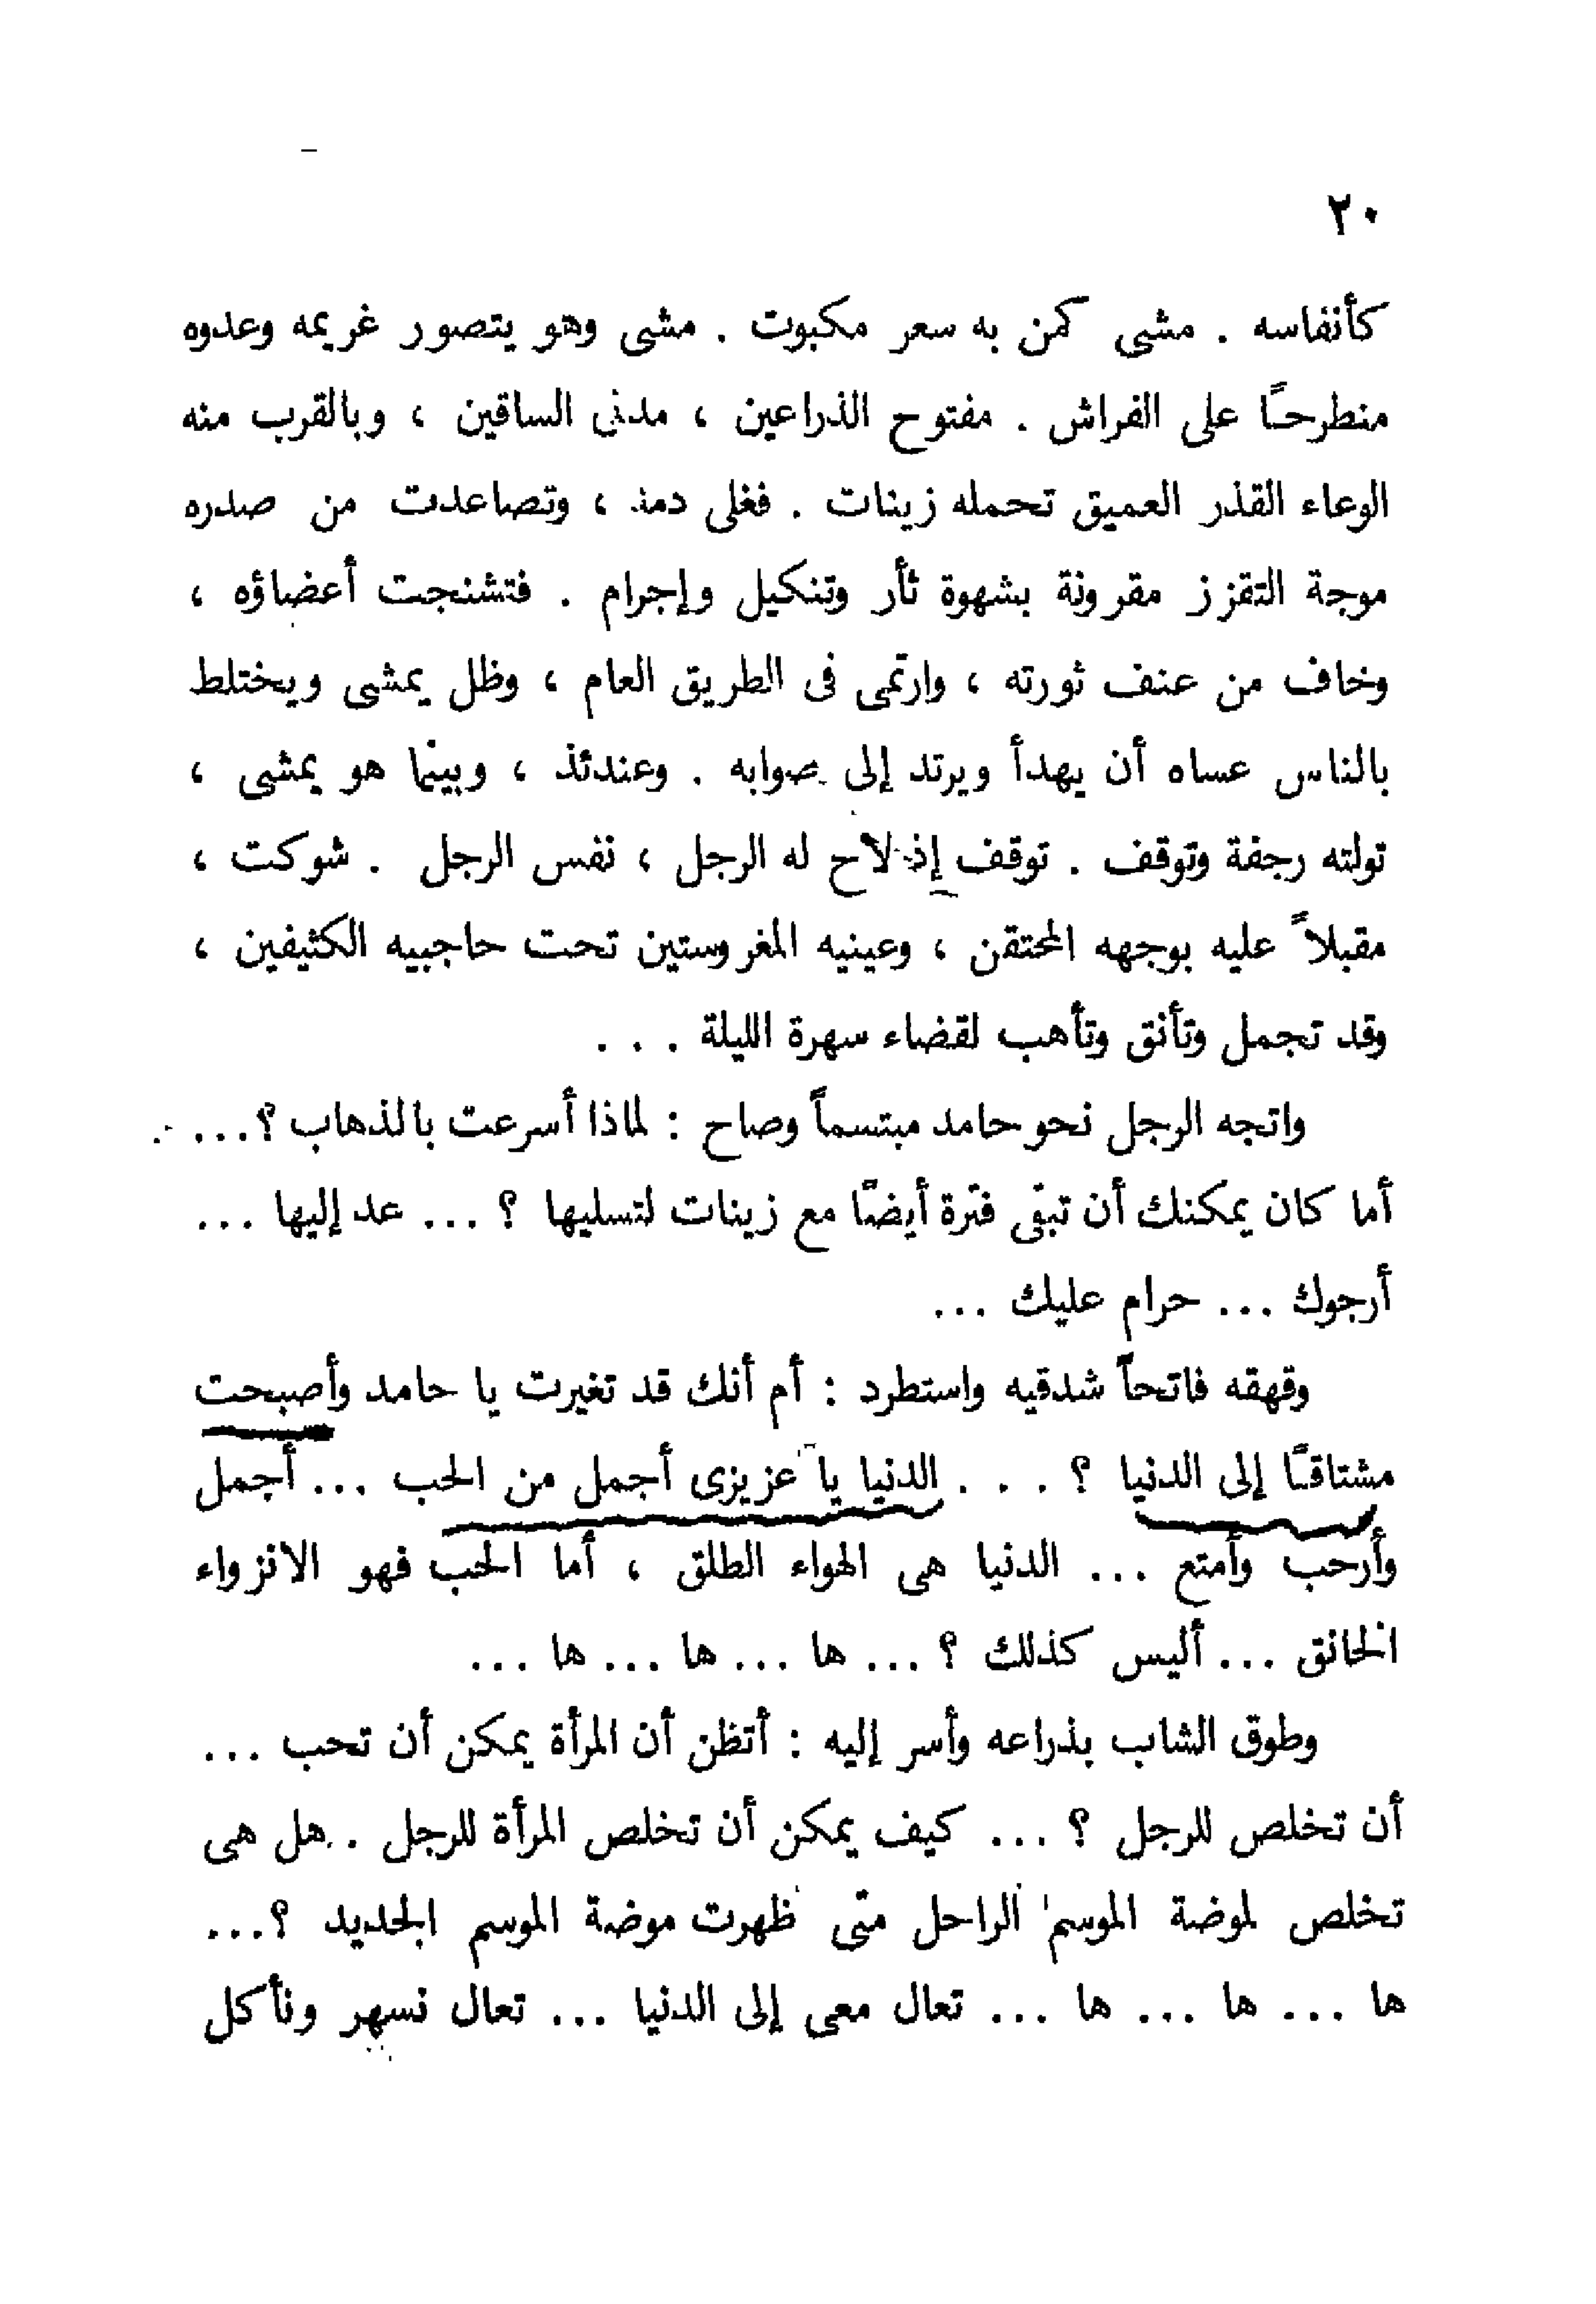 ٢٠
كأنفاسه . مشى كمن به سعر مكبوت . مشى وهو يتصور غريمه وعدوه
منطرحًا على الفراش . مفتوح الذراعين ، مدلى الساقين ، وبالقرب منه
الوعاء القذر العميق تحمله زينات . فغلى دمه ، وتصاعدت من صدره
موجة التقزز مقرونة بشهوة ثأر وتنكيل وإجرام . فتشنجت أعضاؤه ،
وخاف من عنف ثورته ، وارتمى فى الطريق العام ، وظل يمشى ويختلط
بالناس عساه أن يهدأ ويرتد إلى صوابه . وعندئذ ، وبينما هو يمشى ،
تولته رجفة وتوقف . توقف إذ لاح له الرجل ، نفس الرجل . شوكت ،
مقبلاً عليه بوجهه المحتقن ، وعينيه المغروستين تحت حاجبيه الكثيفين ،
وقد تجمل وتأنق وتأهب لقضاء سهرة الليلة . . .
واتجه الرجل نحو حامد مبتسماً وصاح : لماذا أسرعت بالذهاب ؟...
أما كان يمكنك أن تبقى فترة أيضًا مع زينات لتسليها ؟ ... عد إليها ...
أرجوك ... حرام عليك ...
وقهقه فاتحاً شدقيه واستطرد : أم أنك قد تغيرت يا حامد وأصبحت
مشتاقًا إلى الدنيا ؟ . . . الدنيا يا عزيزى أجمل من الحب ... أجمل
وأرحب وأمتع ... الدنيا هى الهواء الطلق ، أما الحب فهو الانزواء
الخانق ... أليس كذلك ؟ ... ها ... ها ... ها ...
وطوق الشاب بذراعه وأسر إليه : أتظن أن المرأة يمكن أن تحب ...
أن تخلص للرجل ؟ ... كيف يمكن أن تخلص المرأة للرجل . هل هى
تخلص لموضة الموسم الراحل متى ظهرت موضة الموسم الجديد ؟...
ها ... ها ... ها ... تعال معى إلى الدنيا ... تعال نسهر ونأكل